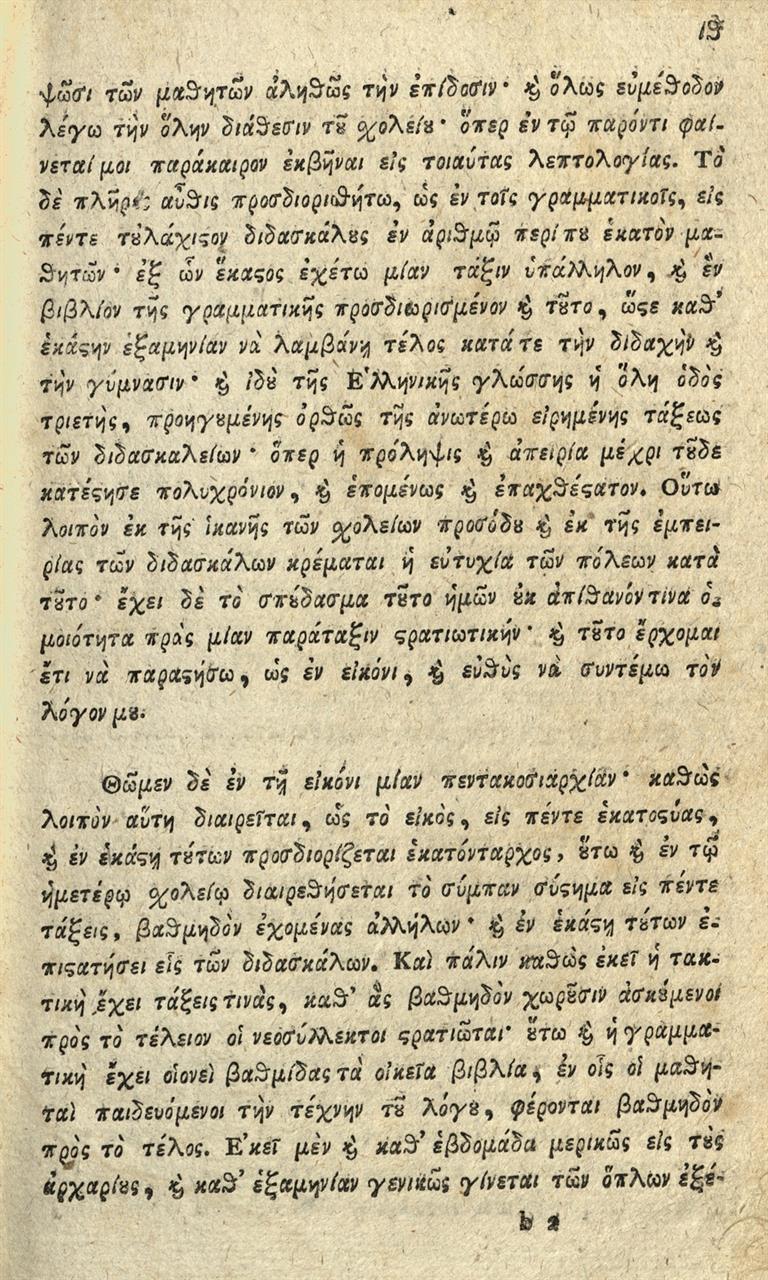 ιθ
ψῶσι τῶν μαθητῶν ἀληθῶς τὴν ἐπίδοσιν· ϗ ὅλως εὐμέθοδον
λέγω τὴν ὅλην διάθεσιν τȣ͂ σχολείȣ· ὅπερ ἐν τῷ παρόντι φαί-
νεταί μοι παράκαιρον ἐκβῆναι εἰς τοιαύτας λεπτολογίας. Τὸ
δὲ πλῆρες αὖθις προσδιοριθήτω, ὡς ἐν τοῖς γραμματικοῖς, εἰς
πέντε τȣλάχιϛον διδασκάλȣς ἐν ἀριθμῷ περίπȣ ἑκατὸν μα-
θητῶν· ἐξ ὧν ἕκαϛος ἐχέτω μίαν τάξιν ὑπάλληλον, ϗ ἓν
βιβλίον τῆς γραμματικῆς προσδιωρισμένον ϗ τȣ͂το, ὥϛε καθ'
ἑκάϛην ἑξαμηνίαν νὰ λαμβάνῃ τέλος κατάτε τὴν διδαχὴν ϗ
τὴν γύμνασιν· ϗ ἰδȣ̀ τῆς Ἑλληνικῆς γλώσσης ἡ ὅλη ὁδὸς
τριετὴς, προηγȣμένης ὀρθῶς τῆς ἀνωτέρω εἰρημένης τάξεως
τῶν διδασκαλείων· ὅπερ ἡ πρόληψις ϗ ἀπειρία μέχρι τȣ͂δε
κατέϛησε πολυχρόνιον, ϗ ἑπομένως ϗ ἐπαχθέϛατον. Οὕτω
λοιπὸν ἐκ τῆς ἱκανῆς τῶν σχολείων προσόδȣ ϗ ἐκ τῆς ἐμπει-
ρίας τῶν διδασκάλων κρέμαται ἡ εὐτυχία τῶν πόλεων κατὰ
τȣ͂το· ἔχει δὲ τὸ σπȣ́δασμα τȣ͂το ἡμῶν ȣ̓κ ἀπίθανόν τινα ὁ-
μοιότητα πρὸς μίαν παράταξιν ϛρατιωτικήν· ϗ τȣ͂το ἔρχομαι
ἔτι νὰ παραϛήσω, ὡς ἐν εἰκόνι, ϗ εὐθὺς νὰ συντέμω τὸν
λόγον μȣ.
Θῶμεν δὲ ἐν τῇ εἰκόνι μίαν πεντακοσιαρχίαν· καθὼς
λοιπὸν αὕτη διαιρεῖται, ὡς τὸ εἰκὸς, εἰς πέντε ἑκατοϛύας,
ϗ ἐν ἑκάϛῃ τȣ́των προσδιορίζεται ἑκατόνταρχος, ȣ̔́τω ϗ ἐν τῷ
ἡμετέρῳ σχολείῳ διαιρεθήσεται τὸ σύμπαν σύϛημα εἰς πέντε
τάξεις, βαθμηδὸν ἐχομένας ἀλλήλων· ϗ ἐν ἑκάϛῃ τȣ́των ἐ-
πιϛατήσει εἷς τῶν διδασκάλων. Καὶ πάλιν καθὼς ἐκεῖ ἡ τακ-
τικὴ ἔχει τάξεις τινὰς, καθ' ἃς βαθμηδὸν χωρȣ͂σιν ἀσκȣ́μενοι
πρὸς τὸ τέλειον οἱ νεοσύλλεκτοι ϛρατιῶται· ȣ̔́τω ϗ ἡ γραμμα-
τικὴ ἔχει οἱονεὶ βαθμίδας τὰ οἰκεῖα βιβλία, ἐν οἷς οἱ μαθη-
ταὶ παιδευόμενοι τὴν τέχνην τȣ͂ λόγȣ, φέρονται βαθμηδὸν
πρὸς τὸ τέλος. Ἐκεῖ μὲν ϗ καθ' ἑβδομάδα μερικῶς εἰς τȣ̀ς
ἀρχαρίȣς, ϗ καθ' ἑξαμηνίαν γενικῶς γίνεται τῶν ὅπλων ἐξέ-
b 2